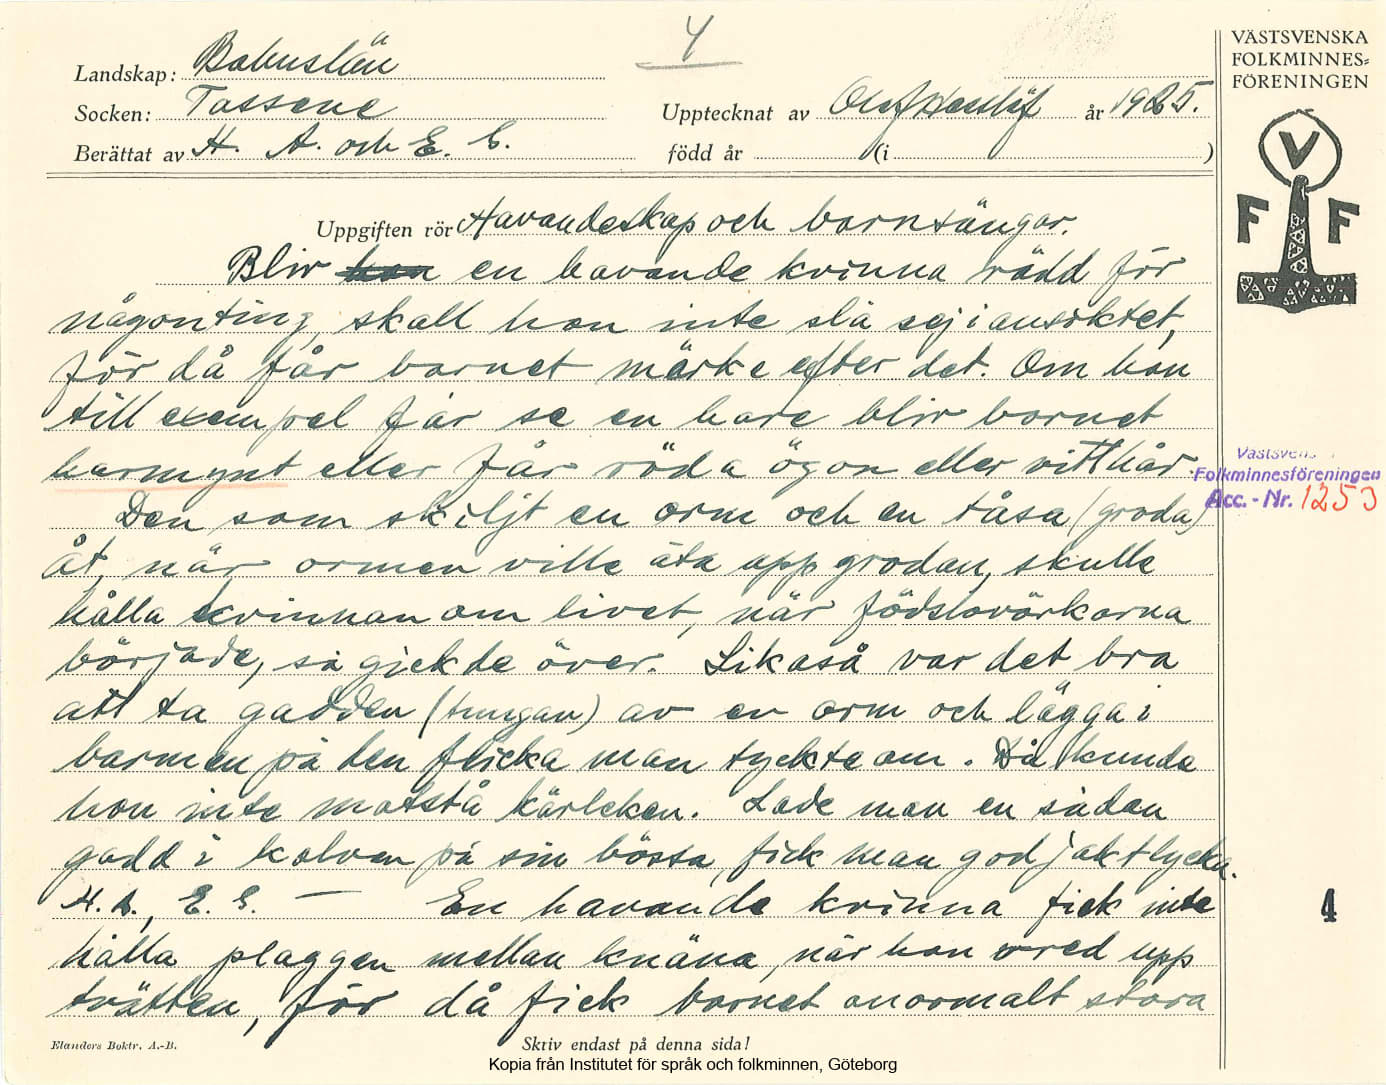 4
VÄSTSVENSKA
FOLKMINNES=
FÖRENINGEN
Landskap: Bohuslän
Socken: Tossene Upptecknat av Olof Hasslöf år 1925.
Berättat av H. A. och E. E. född år (i )
V
F F
Uppgiften rör Havandeskap och barnsängar.
Bliv hon en havande kvinna rädd för
någonting, skall hon inte slå sej i ansiktet,
för då får barnet märke efter det. Om hon
till exempel får se en hare blir barnet
harmynt eller får röda ögon eller vitt hår.
Västsvens
Folkminnesföreningen
Acc. - Nr. 1253
Den som skiljt en orm och en tåsa (groda)
åt, när ormen ville äta upp grodan, skulle
hålla kvinnan om livet, när födslovärkarna
började, så gick de över. Likaså var det bra
att ta gadden (tungan) av en orm och lägga i
barmen på den flicka man tyckte om. Då kunde
hon inte motstå kärleken. Lade man en sådan
gadd i kolven på sin bössa, fick man god jaktlycka.
H. A., E. E. — En havande kvinna fick inte
4
hålla plaggen mellan knäna, när hon vred upp
tvätten, för då fick barnet onormalt stora
Elanders Boktr. A.-B.
Skriv endast på denna sida!
Kopia från Institutet för språk och folkminnen, Göteborg